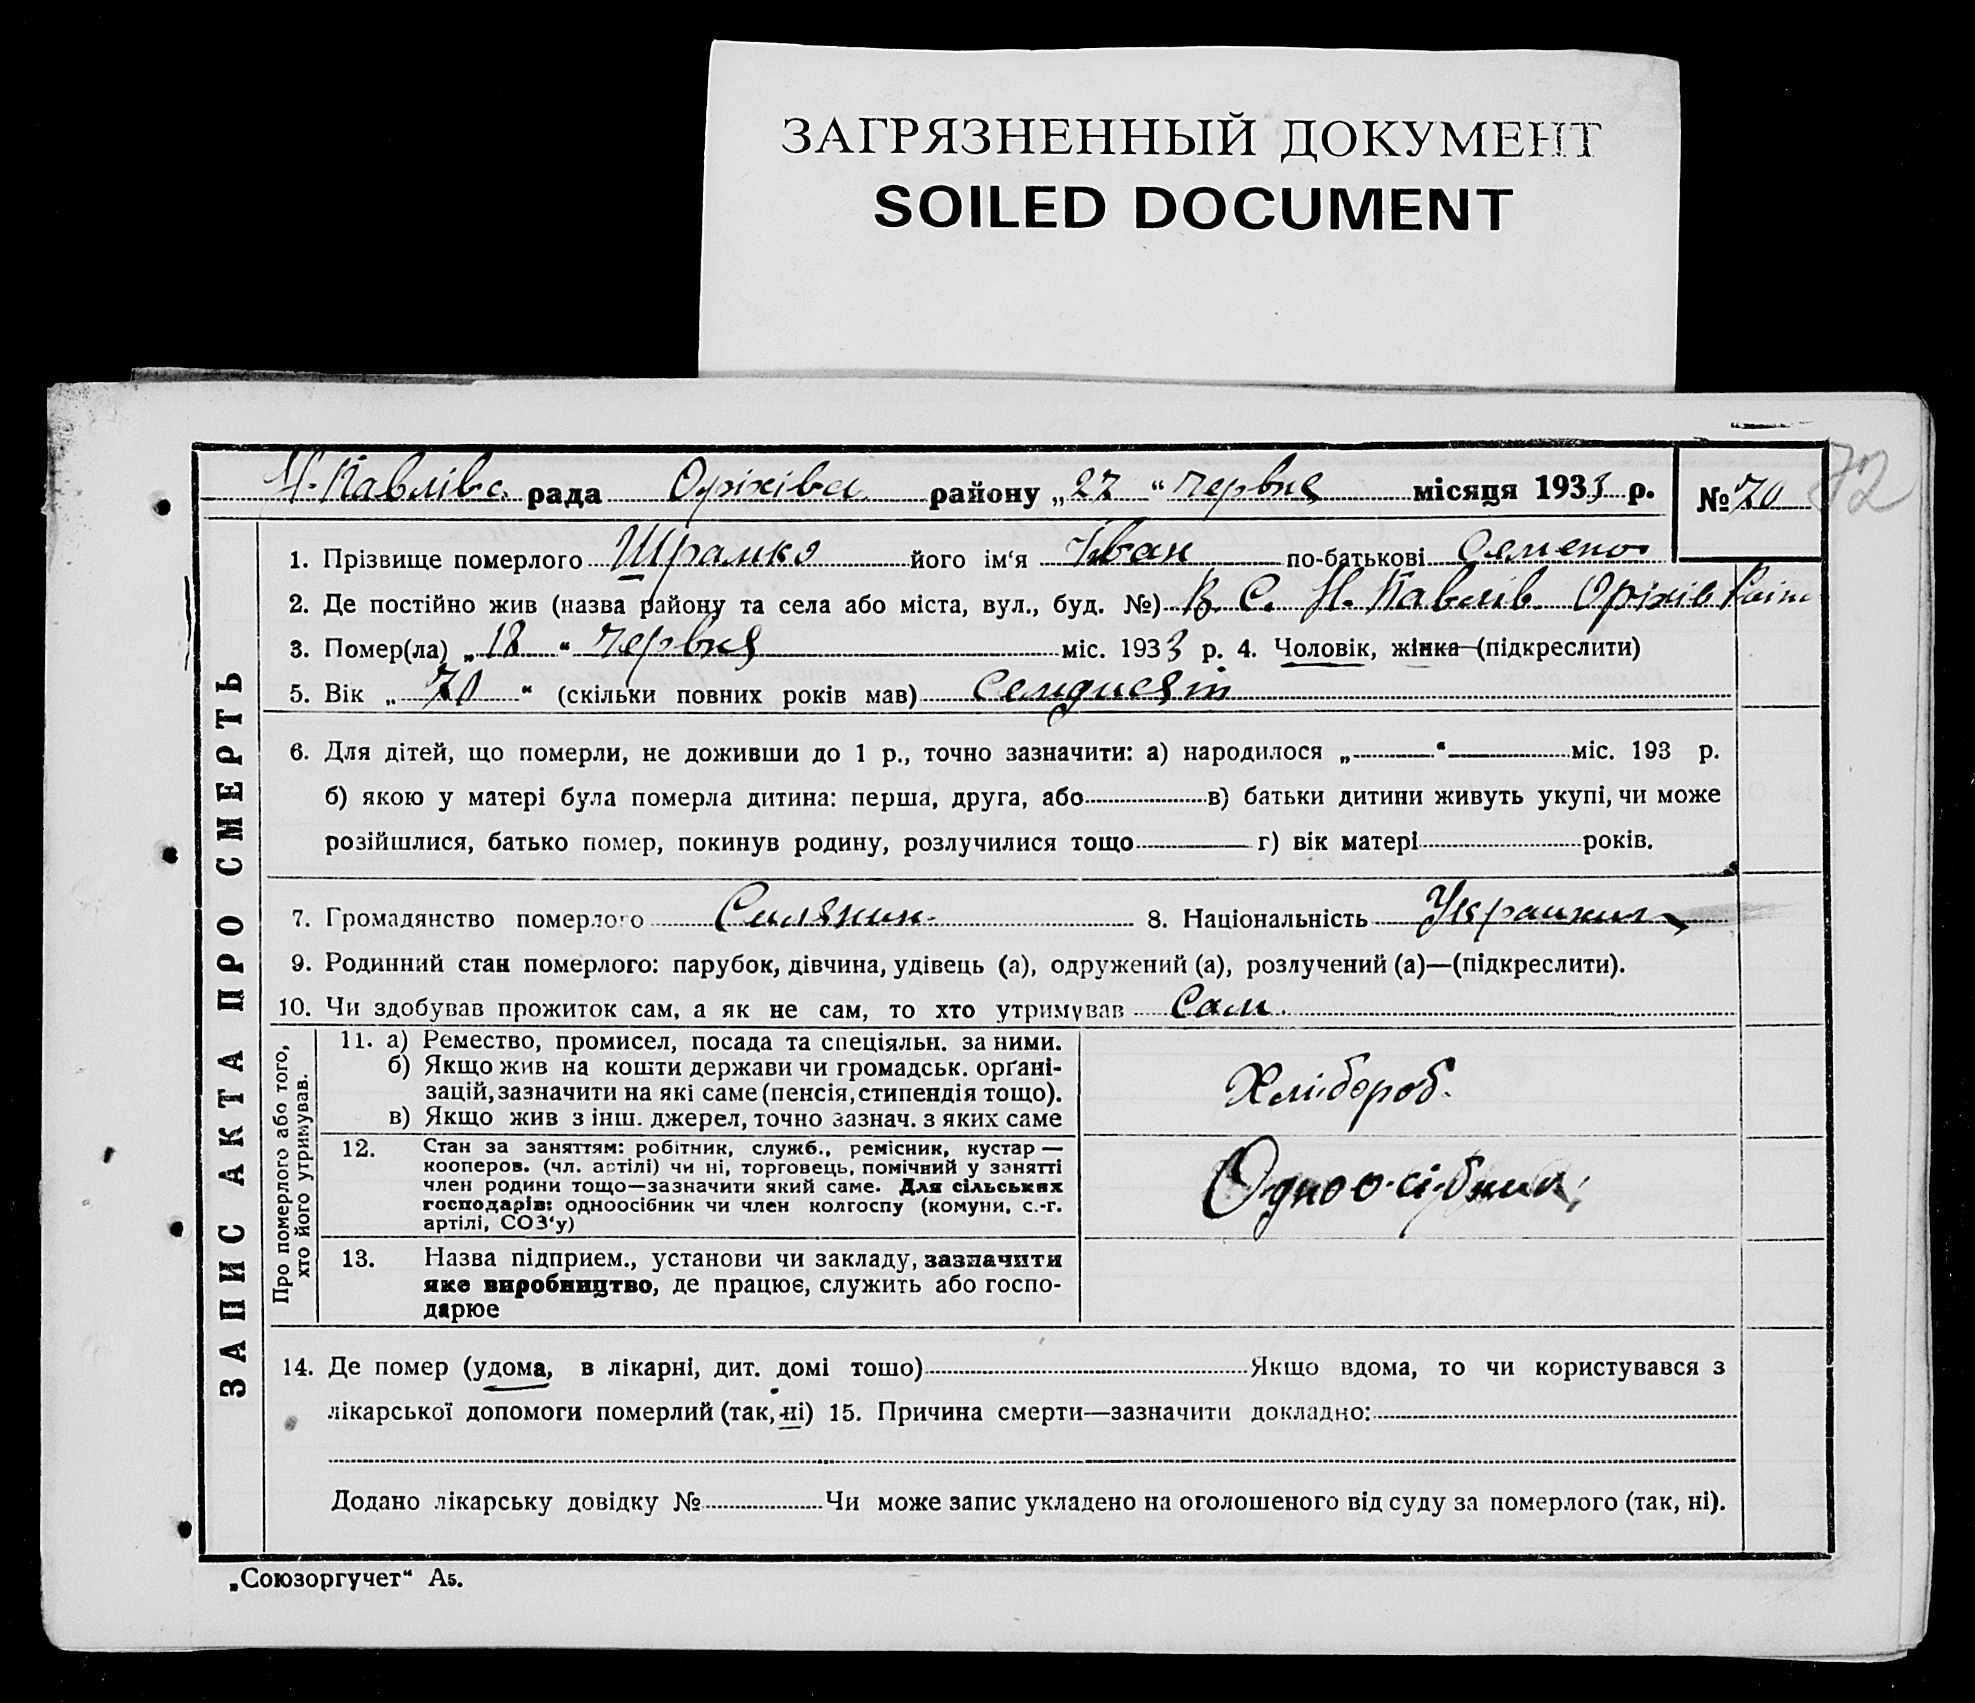 ЗАГРЯЗНЕННЫЙ ДОКУМЕНТ
SOILED DOCUMENT
Н. Павлівс. рада Оріхівсь району „27“ червня місяця 1933 р. № 70 72
1. Прізвище померлого Шрамко його ім‘я Іван по-батькові Семено
2. Де постійно жив (назва району та села або міста, вул., буд. №) В С. Н. Павлів Оріхів
3. Помер(ла) „18“ червня міс. 1933 р. 4. Чоловік, жінка—(підкреслити)
5. Вік „70“ (скільки повних років мав) Семдисят
6. Для дітей, що померли, не доживши до 1 р., точно зазначити: а) народилося „ “ міс. 193 р.
б) якою у матері була померла дитина: перша, друга, або в) батьки дитини живуть укупі, чи може
розійшлися, батько помер, покинув родину, розлучилися тощо г) вік матері років.
7. Громадянство померлого Силянин 8. Національність
9. Родинний стан померлого: парубок, дівчина, удівець (а), одружений (а), розлучений (а)—(підкреслити).
10. Чи здобував прожиток сам, а як не сам, то хто утримував Сам.
11. а) Ремество, промисел, посада та спеціяльн. за ними.
б) Якщо жив на кошти держави чи громадськ. орґані-
зацій, зазначити на які саме (пенсія, стипендія тощо).
в) Якщо жив з інш. джерел, точно зазнач. з яких саме
Хлібороб.
12. Стан за заняттям: робітник, служб., ремісник, кустар —
кооперов. (чл. артілі) чи ні, торговець, помічний у занятті
член родини тощо—зазначити який саме. Для сільських
господарів: одноосібник чи член колгоспу (комуни, с.-г.
артілі, СОЗ‘у)
Одноосібник
13. Назва підприєм., установи чи закладу, зазначити
яке виробництво, де працює, служить або госпо-
дарює
14. Де помер (удома, в лікарні, дит. домі тощо) Якщо вдома, то чи користувався з
лікарської допомоги померлий (так, ні) 15. Причина смерти—зазначити докладно:
Додано лікарську довідку № Чи може запис укладено на оголошеного від суду за померлого (так, ні).
ЗАПИС АКТА ПРО СМЕРТЬ
Про померлого або того,
хто його утримував.
„Союзоргучет“ А5.